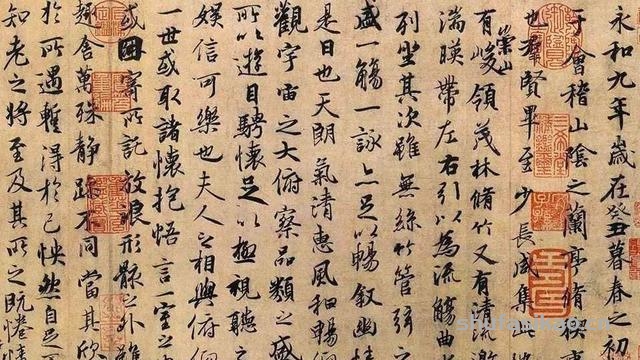 永和九年歲在癸丑暮春之初
于會稽山陰之蘭亭脩稧事
也羣賢畢至少長咸集此
有崇山峻領茂林脩竹又有清流激
湍暎帶左右引以為流觴曲
列坐其次雖無絲竹管弦之
盛一觴一詠亦足以暢叙幽情
是日也天朗氣清惠風和暢仰
觀宇宙之大俯察品類之盛
所以遊目騁懷足以極視聽之
娛信可樂也夫人之相與俯仰
一世或取諸懷抱悟言一室之內
或因寄所託放浪形骸之外雖
趣舍萬殊静躁不同當其欣
於所遇暫得於己怏然自足不
知老之將至及其所之既惓情